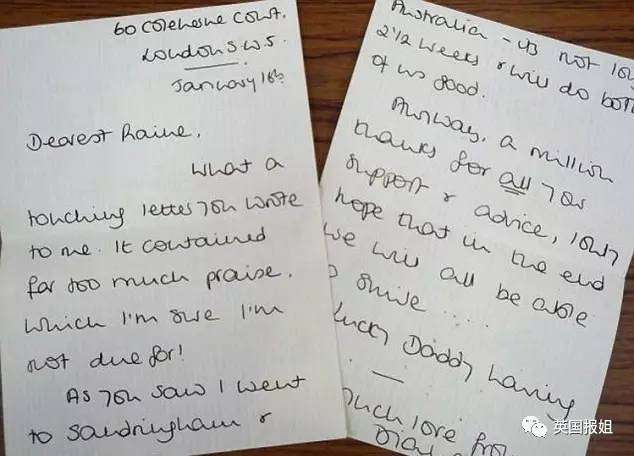 60 Coleherne Court.
London SW5.
January 16th
Dearest Raine,
What a
touching letter you wrote
to me. It contained
far too much praise.
which I'm sure I'm
not due for!
As you saw I went
to Sandringham &
Australia - its not long
2 1/2 weeks & will do both
of us good.
Anyway, a million
thanks for all your
support & advice,
hope that in the end
we will all be able
smile .....
Lucky Daddy having
much love from
英国报姐